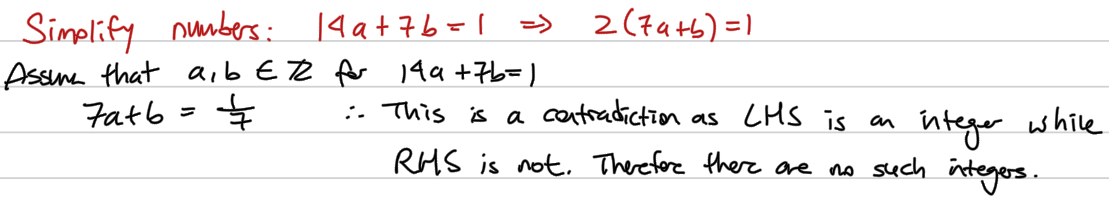 Simplify numbers: 14a + 7b = 1 ⇒ 2(7a+b)=1
Assume that a, b ∈ ℤ for 14a + 7b = 1
7a + b = 1/7 ∴ This is a contradiction as LHS is an integer while
RHS is not. Therefore there are no such integers.